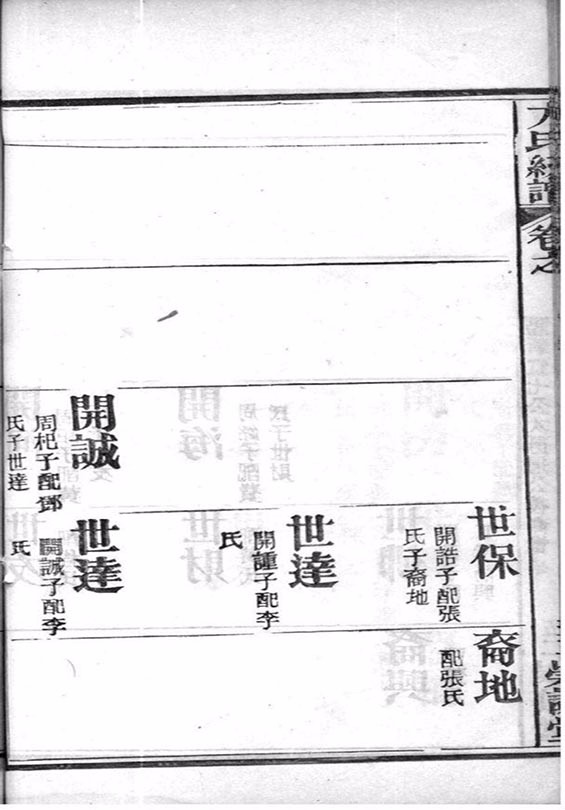 方氏紃譜
卷之
世保
開誥子配張
氏子裔地
裔地
配張氏
世達
開諥子配李
氏
開誠
周杞子配鄧
氏子世達
世達
開誠子配李
氏